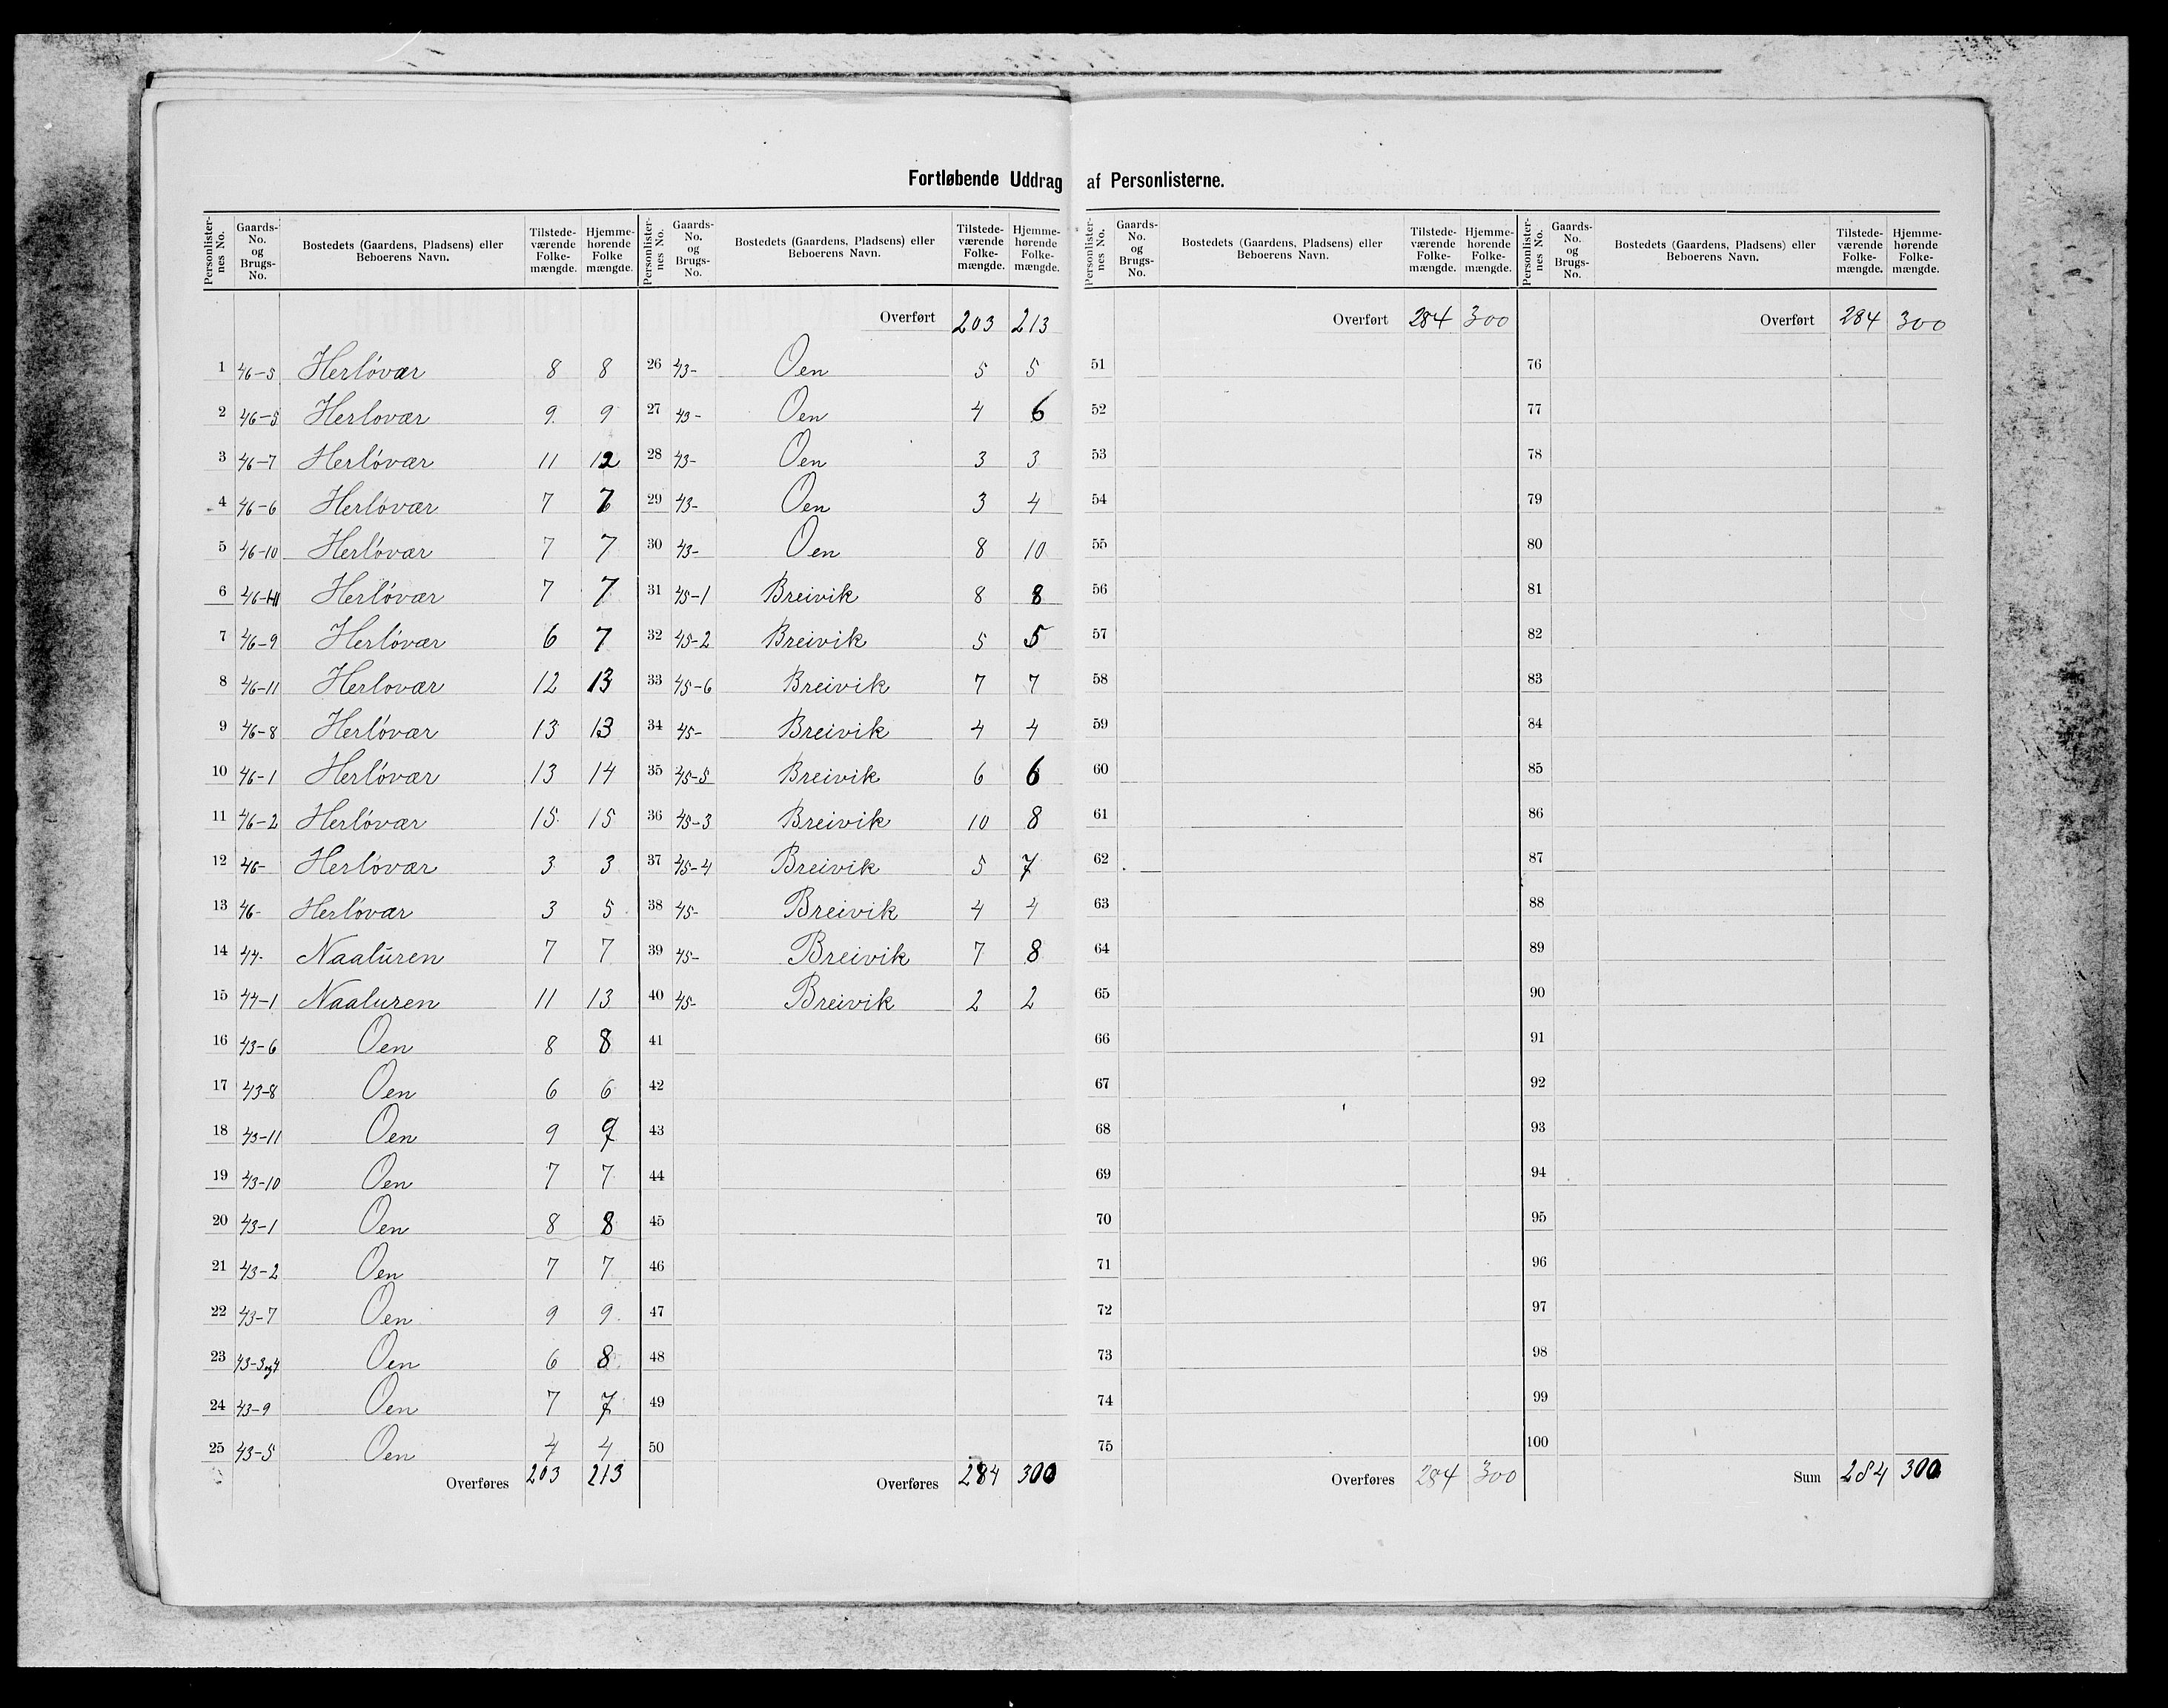 Fortløbende Uddrag af Personlisterne.
Personlister-nes No. Gaards-No. og Brugs-No. Bostedets (Gaardens, Pladsens) eller Beboerens Navn. Tilstede-værende Folke-mængde. Hjemme-hørende Folke mængde.
1 46-5 Herløvær 8 8
2 46-5 Herlovær 9 9
3 46-7 Herløvær 11 12
4 46-6 Herløvær 7 7
5 46-10 Herløvær 7 7
6 46- Herløvær 7 7
7 46-9 Herløvær 6 7
8 46-11 Herlovær 12 13
9 46-8 Herløvær 13 13
10 46-1 Herløvær 13 14
11 46-2 Herløvær 15 15
12 46- Herløvær 3 3
13 46- Herløvær 3 5
14 44- Naaluren 7 7
15 44-1 Naaluren 11 13
16 43-6 Oen 8 8
17 43-8 Oen 6 6
18 43-11 Oen 9 9
19 43-10 Oen 7 7
20 43-1 Oen 8 8
21 43-2 Oen 7 7
22 43-7 Oen 9 9
23 43-3og4 Oen 6 8
24 43-9 Oen 7 7
25 43-5 Oen 4 4
Overføres 203 213
Personlister-nes No. Gaards-No. og Brugs-No. Bostedets (Gaardens, Pladsens) eller Beboerens Navn. Tilstede-værende Folke-mængde. Hjemme-hørende Folke-mængde.
Overført 203 213
26 43- Oen 5 5
27 43- Oen 4 6
28 43- Oen 3 3
29 43- Oen 3 4
30 43- Oen 8 10
31 45-1 Breivik 8 8
32 45-2 Breivik 5 5
33 45-6 Breivik 7 7
34 45- Breivik 4 4
35 45-5 Breivik 6 6
36 45-3 Breivik 10 8
37 45-4 Breivik 5 7
38 45- Breivik 4 4
39 45- Breivik 7 8
40 45- Breivik 2 2
41
42
43
44
45
46
47
48
49
50
Overføres 284 300
Personlister-nes No. Gaards-No. og Brugs-No. Bostedets (Gaardens, Pladsens) eller Beboerens Navn. Tilstede-værende Folke-mængde. Hjemme-hørende Folke-mængde.
Overført 284 300
51
52
53
54
55
56
57
58
59
60
61
62
63
64
65
66
67
68
69
70
71
72
73
74
75
Overføres 284 300
Personlister-nes No. Gaards-No. og Brugs-No. Bostedets (Gaardens, Pladsens) eller Beboerens Navn. Tilstede-værende Folke-mængde. Hjemme-hørende Folke-mængde.
Overført 284 300
76
77
78
79
80
81
82
83
84
85
86
87
88
89
90
91
92
93
94
95
96
97
98
99
100
Sum 284 300